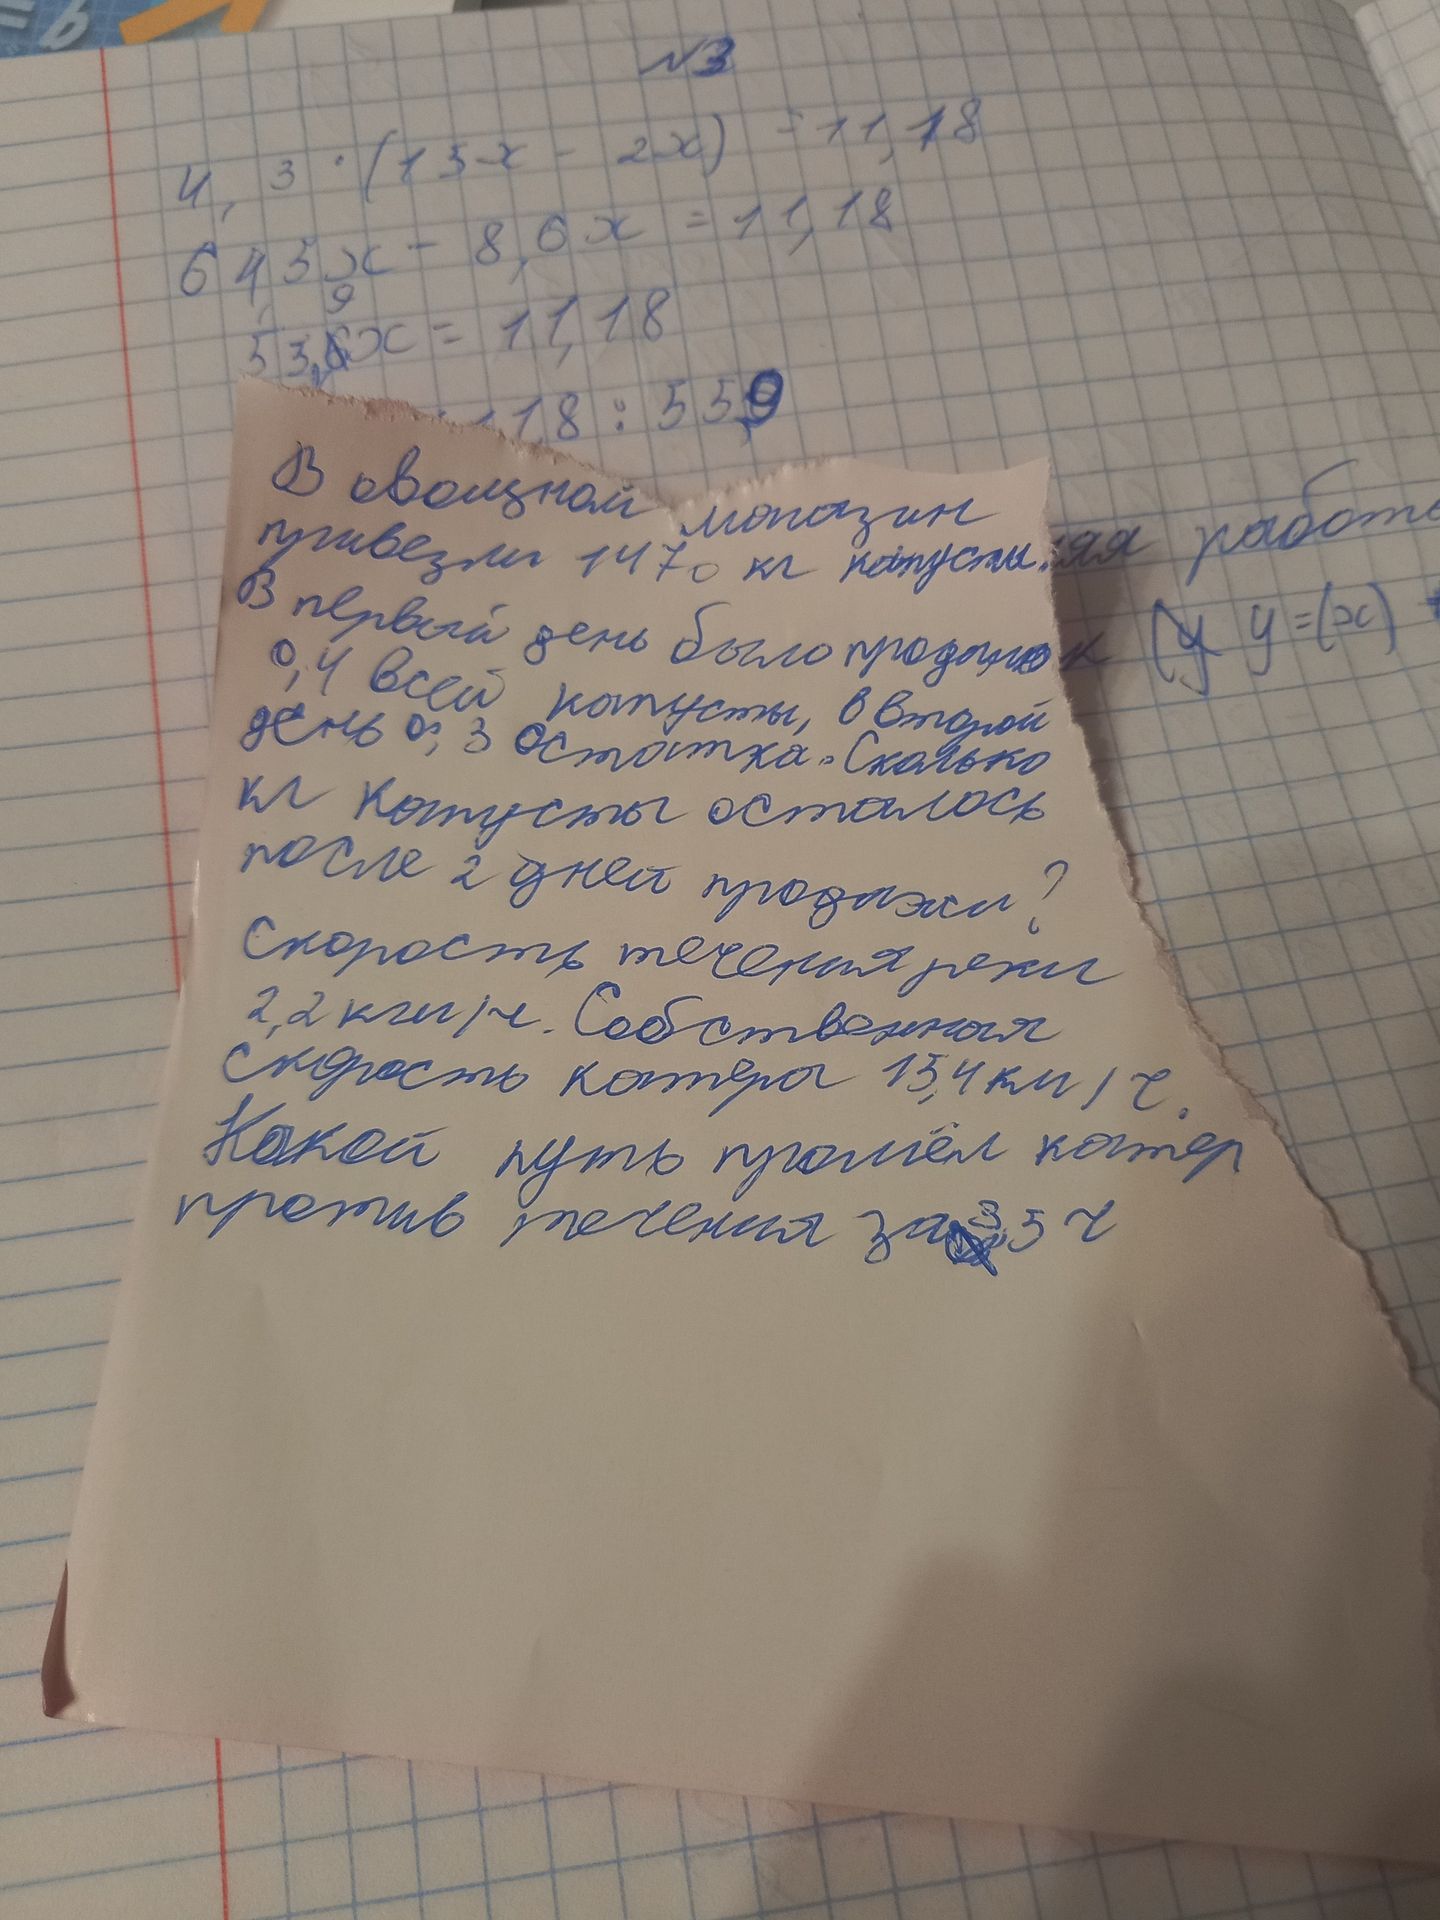 №3
4,3·(15x - 2x) = 11,18
64,5x - 8,6x = 11,18
11,18
11,8 : 55,9
В овощной магазин
привезли 1470 кг капусты.
няя работа
В первый день было продано
к (у y=(x)
0,4 всей капусты, в второй
день 0,3 остатка. Сколько
кг капусты осталось
после 2 дней продажи?
Скорость течения реки
2,2 км/ч. Собственная
скорость катера 15,4 км/ч.
Какой путь прошёл катер
против течения за 3,5 ч